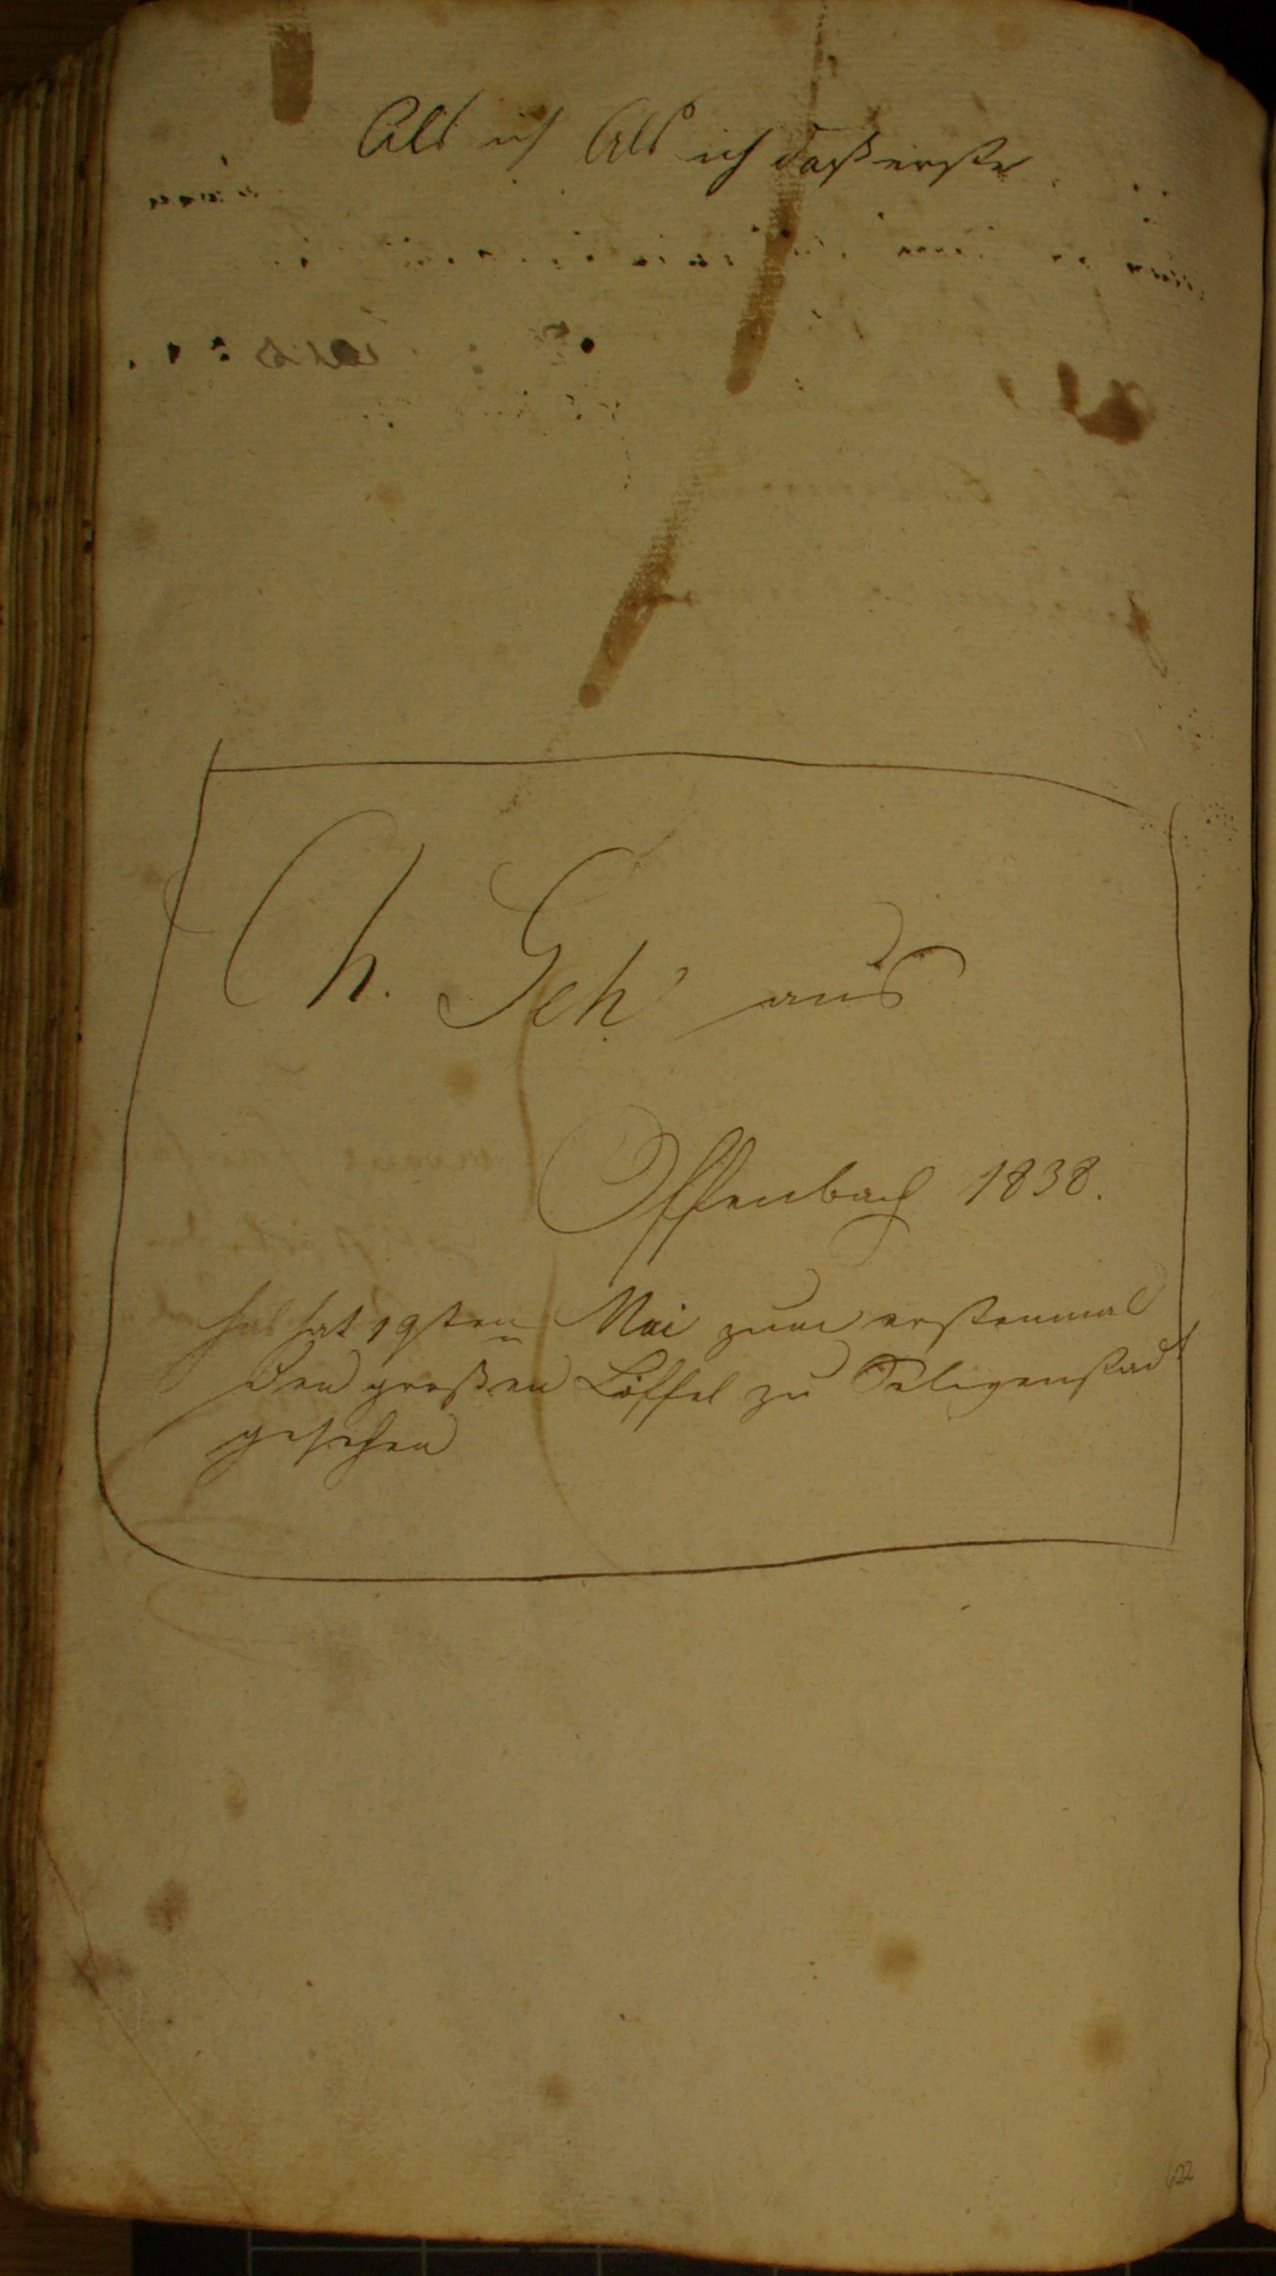 Als ich Als ich daß erste
Ch. Geh' aus
Offenbach 1838.
hat hat 19ten Mai zum erstenmal
den großen Löffel zu Seligenstadt
gesehen
622